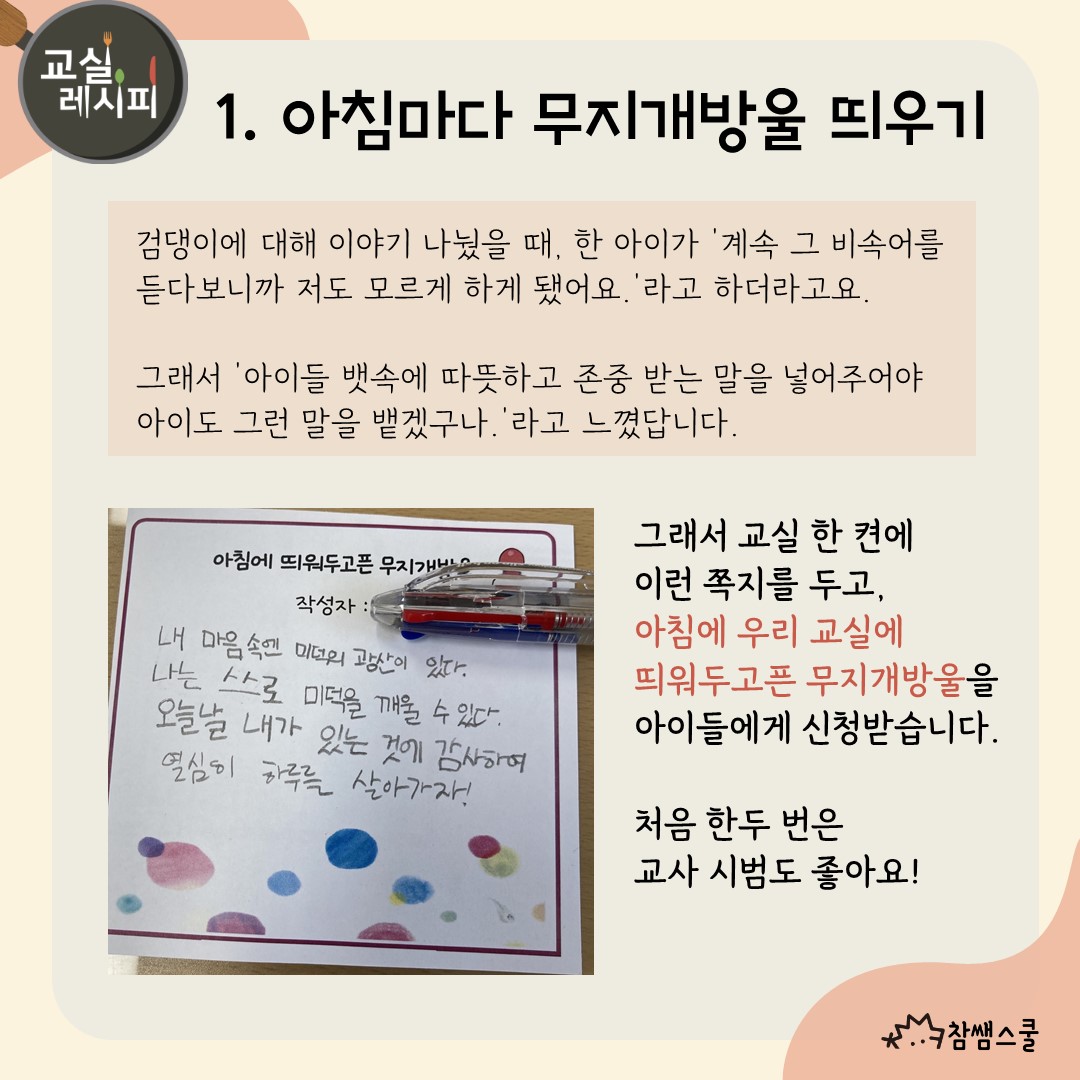 교실
레시피
1. 아침마다 무지개방울 띄우기
검댕이에 대해 이야기 나눴을 때, 한 아이가 '계속 그 비속어를
듣다보니까 저도 모르게 하게 됐어요.'라고 하더라고요.
그래서 '아이들 뱃속에 따뜻하고 존중 받는 말을 넣어주어야
아이도 그런 말을 뱉겠구나.'라고 느꼈답니다.
아침에 띄워두고픈 무지개방울
작성자 :
내 마음속엔 미덕의 광산이 있다.
나는 스스로 미덕을 깨울 수 있다.
오늘날 내가 있는 것에 감사하여
열심히 하루를 살아가자!
그래서 교실 한 켠에
이런 쪽지를 두고,
아침에 우리 교실에
띄워두고픈 무지개방울을
아이들에게 신청받습니다.
처음 한두 번은
교사 시범도 좋아요!
참쌤스쿨